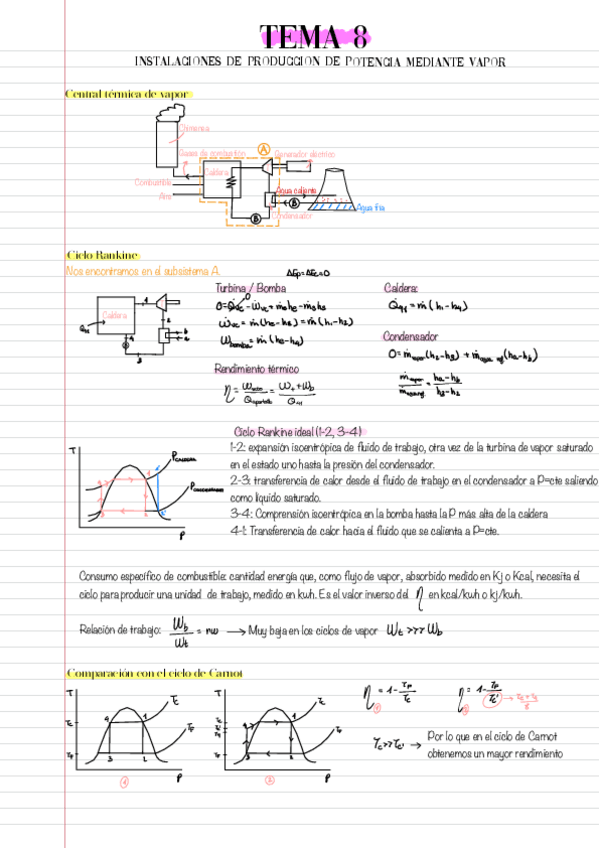 TEMA 8
INSTALACIONES DE PRODUCCION DE POTENCIA MEDIANTE VAPOR
Central térmica de vapor
Chimenea
Gases de combustión
A
Generador eléctrico
Caldera
Combustible
Aire
Agua caliente
B
Agua fría
B
Condensador
Ciclo Rankine
Nos encontramos en el subsistema A.
ΔEp=ΔEc=0
Turbina / Bomba
Caldera:
Caldera
Q̇H = ṁ (h1-h4)
Condensador
Rendimiento térmico
Ciclo Rankine ideal (1-2, 3-4)
1-2: expansión isoentrópica de fluido de trabajo, otra vez de la turbina de vapor saturado
en el estado uno hasta la presión del condensador.
2-3: transferencia de calor desde el fluido de trabajo en el condensador a P=cte saliendo
como líquido saturado.
3-4: Comprensión isoentrópica en la bomba hasta la P más alta de la caldera
4-1: Transferencia de calor hacia el fluido que se calienta a P=cte.
T
PCALDERA
PCONDENSADOR
P
Consumo específico de combustible: cantidad energía que, como flujo de vapor, absorbido medido en Kj o Kcal, necesita el
ciclo para producir una unidad de trabajo, medido en kwh. Es el valor inverso del η en kcal/kwh o kj/kwh.
Relación de trabajo: Wb/Wt = rw → Muy baja en los ciclos de vapor Wt >>> Wb
Comparación con el ciclo de Carnot
T
Tc
TF
4
1
3
2
P
1
T
Tc
TF
P
2
η = 1- TF/Tc
1
η = 1- TF/Tc'
2
Tc>>Tc' →
Por lo que en el ciclo de Carnot
obtenemos un mayor rendimiento